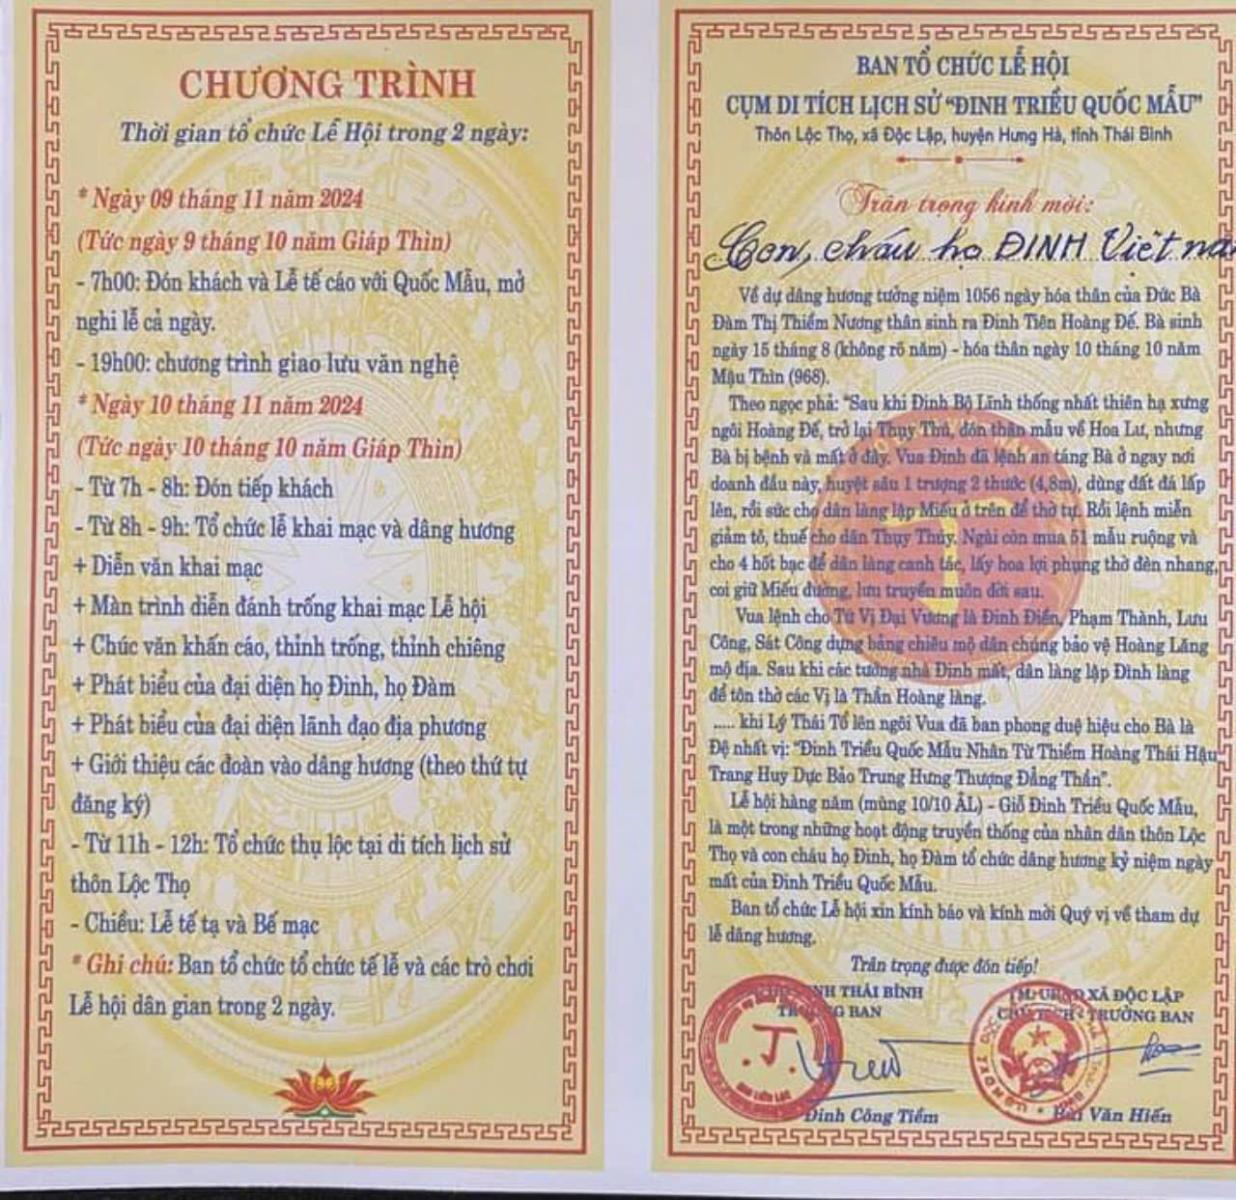 CHƯƠNG TRÌNH
Thời gian tổ chức Lễ Hội trong 2 ngày:
* Ngày 09 tháng 11 năm 2024
(Tức ngày 9 tháng 10 năm Giáp Thìn)
- 7h00: Đón khách và Lễ tế cáo với Quốc Mẫu, mở
nghi lễ cả ngày.
- 19h00: chương trình giao lưu văn nghệ
* Ngày 10 tháng 11 năm 2024
(Tức ngày 10 tháng 10 năm Giáp Thìn)
- Từ 7h - 8h: Đón tiếp khách
- Từ 8h - 9h: Tổ chức lễ khai mạc và dâng hương
+ Diễn văn khai mạc
+ Màn trình diễn đánh trống khai mạc Lễ hội
+ Chúc văn khấn cáo, thỉnh trống, thỉnh chiêng
+ Phát biểu của đại diện họ Đinh, họ Đàm
+ Phát biểu của đại diện lãnh đạo địa phương
+ Giới thiệu các đoàn vào dâng hương (theo thứ tự
đăng ký)
- Từ 11h - 12h: Tổ chức thụ lộc tại di tích lịch sử
thôn Lộc Thọ
- Chiều: Lễ tế tạ và Bế mạc
* Ghi chú: Ban tổ chức tổ chức tế lễ và các trò chơi
Lễ hội dân gian trong 2 ngày.
BAN TỔ CHỨC LỄ HỘI
CỤM DI TÍCH LỊCH SỬ “ĐINH TRIỀU QUỐC MẪU”
Thôn Lộc Thọ, xã Độc Lập, huyện Hưng Hà, tỉnh Thái Bình
Trân trọng kính mời:
Con, cháu họ ĐINH Việt nam
Về dự dâng hương tưởng niệm 1056 ngày hóa thân của Đức Bà
Đàm Thị Thiềm Nương thân sinh ra Đinh Tiên Hoàng Đế. Bà sinh
ngày 15 tháng 8 (không rõ năm) - hóa thân ngày 10 tháng 10 năm
Mậu Thìn (968).
Theo ngọc phả: “Sau khi Đinh Bộ Lĩnh thống nhất thiên hạ xưng
ngôi Hoàng Đế, trở lại Thụy Thú, đón thân mẫu về Hoa Lư, nhưng
Bà bị bệnh và mất ở đây. Vua Đinh đã lệnh an táng Bà ở ngay nơi
doanh đầu này, huyệt sâu 1 trượng 2 thước (4,8m), dùng đất đá lấp
lên, rồi sức cho dân làng lập Miếu ở trên để thờ tự. Rồi lệnh miễn
giảm tô, thuế cho dân Thụy Thủy. Ngài còn mua 51 mẫu ruộng và
cho 4 hốt bạc để dân làng canh tác, lấy hoa lợi phụng thờ đèn nhang,
coi giữ Miếu đường, lưu truyền muôn đời sau.
Vua lệnh cho Tứ Vị Đại Vương là Đinh Điền, Phạm Thành, Lưu
Công, Sát Công dựng bảng chiêu mộ dân chúng bảo vệ Hoàng Lăng
mộ địa. Sau khi các tướng nhà Đinh mất, dân làng lập Đình làng
để tôn thờ các Vị là Thần Hoàng làng.
..... khi Lý Thái Tổ lên ngôi Vua đã ban phong duệ hiệu cho Bà là
Đệ nhất vị: “Đinh Triều Quốc Mẫu Nhân Từ Thiềm Hoàng Thái Hậu
Trang Huy Dực Bảo Trung Hưng Thượng Đẳng Thần”.
Lễ hội hàng năm (mùng 10/10 ÂL) - Giỗ Đinh Triều Quốc Mẫu,
là một trong những hoạt động truyền thống của nhân dân thôn Lộc
Thọ và con cháu họ Đinh, họ Đàm tổ chức dâng hương kỷ niệm ngày
mất của Đinh Triều Quốc Mẫu.
Ban tổ chức Lễ hội xin kính báo và kính mời Quý vị về tham dự
lễ dâng hương.
Trân trọng được đón tiếp!
THÁI BÌNH
BAN
TM. UBND XÃ ĐỘC LẬP
CHỦ TỊCH - TRƯỞNG BAN
Đinh Công Tiềm
Bùi Văn Hiến